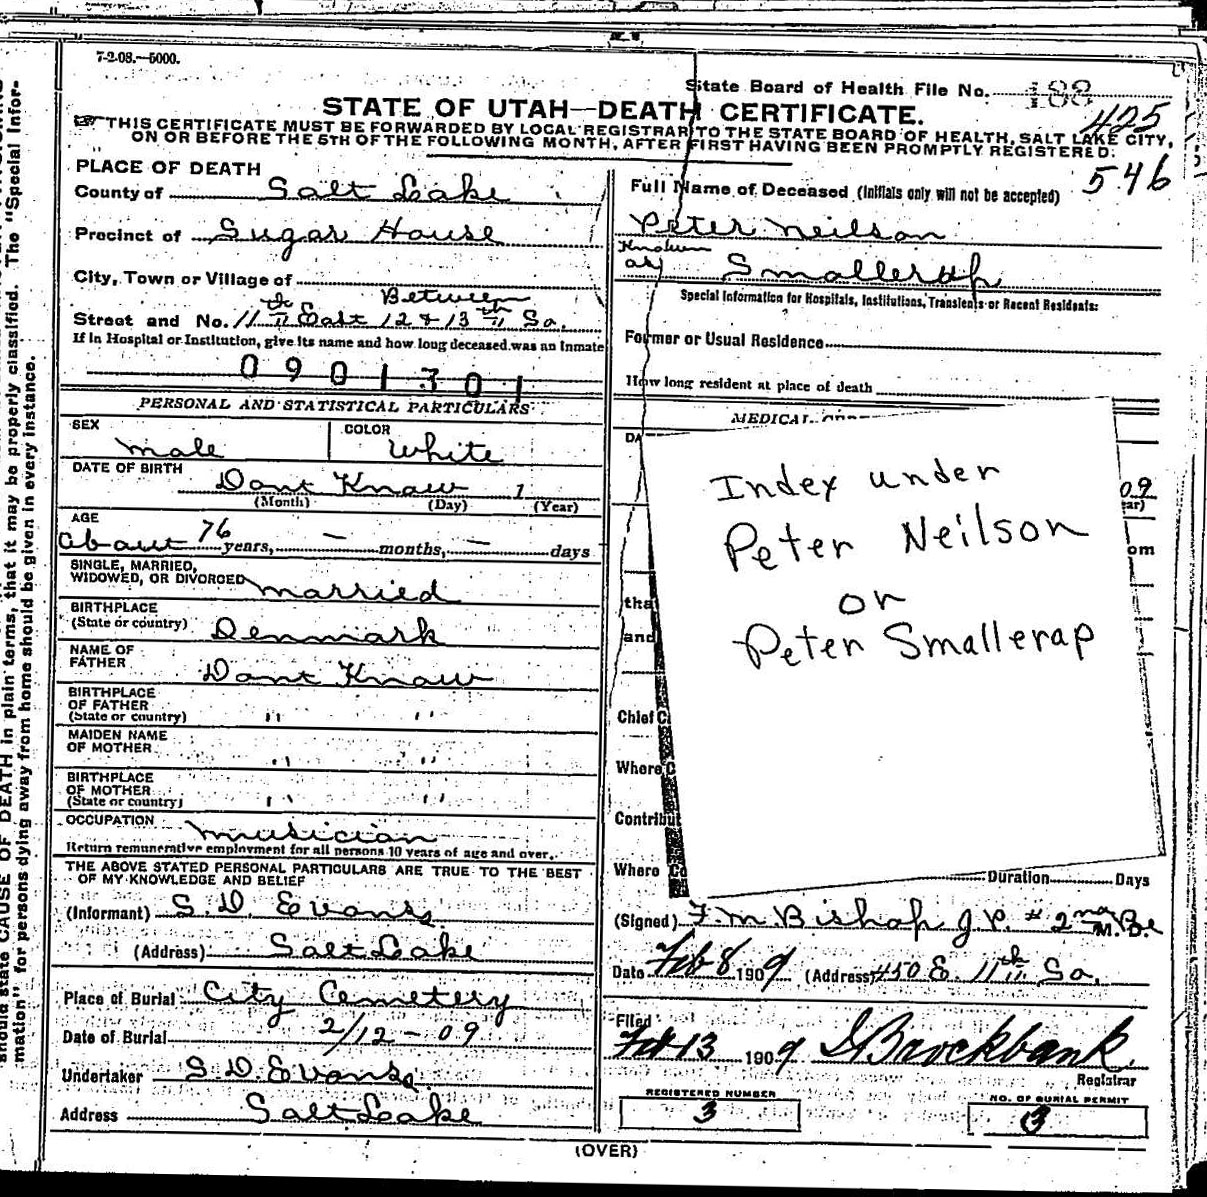 7-2-08.—5000.
State Board of Health File No. 188
425
STATE OF UTAH—DEATH CERTIFICATE.
THIS CERTIFICATE MUST BE FORWARDED BY LOCAL REGISTRAR TO THE STATE BOARD OF HEALTH, SALT LAKE CITY,
ON OR BEFORE THE 5TH OF THE FOLLOWING MONTH, AFTER FIRST HAVING BEEN PROMPTLY REGISTERED.
546
PLACE OF DEATH
County of Salt Lake
Precinct of Sugar House
City, Town or Village of
Between
Street and No. 11th East 12 & 13th So.
If in Hospital or Institution, give its name and how long deceased was an Inmate
0901301
PERSONAL AND STATISTICAL PARTICULARS
SEX
Male
COLOR
White
DATE OF BIRTH
Dont Know 1
(Month) (Day) (Year)
AGE
about 76 years, — months, — days
SINGLE, MARRIED,
WIDOWED, OR DIVORCED Married
BIRTHPLACE
(State or country) Denmark
NAME OF
FATHER Dont Know
BIRTHPLACE
OF FATHER
(State or country) " "
MAIDEN NAME
OF MOTHER " "
BIRTHPLACE
OF MOTHER
(State or country) " "
OCCUPATION Musician
Return remunerative employment for all persons 10 years of age and over.
THE ABOVE STATED PERSONAL PARTICULARS ARE TRUE TO THE BEST
OF MY KNOWLEDGE AND BELIEF
(Informant) S. D. Evans
(Address) Salt Lake
Place of Burial City Cemetery
Date of Burial 2/12-09
Undertaker S. D. Evans
Address Salt Lake
Full Name of Deceased (Initials only will not be accepted)
Peter Neilson
Known
as Smallerap
Special Information for Hospitals, Institutions, Transients or Recent Residents:
Former or Usual Residence
How long resident at place of death
MEDICAL
DA
Index under
Peter Neilson
or
Peter Smallerap
09
ear)
om
tha
and
Chief C
Where C
Contribu
Where Co
Duration Days
(Signed) F. M. Bishop J.P. # 2nd M.D.
Date Feb 8 1909 (Address) 450 E. 11th So.
Filed
Feb 13 1909 Brockbank
Registrar
REGISTERED NUMBER
3
NO. OF BURIAL PERMIT
3
(OVER)
should state CAUSE OF DEATH in plain terms, that it may be properly classified. The "Special Infor-
mation" for persons dying away from home should be given in every instance.